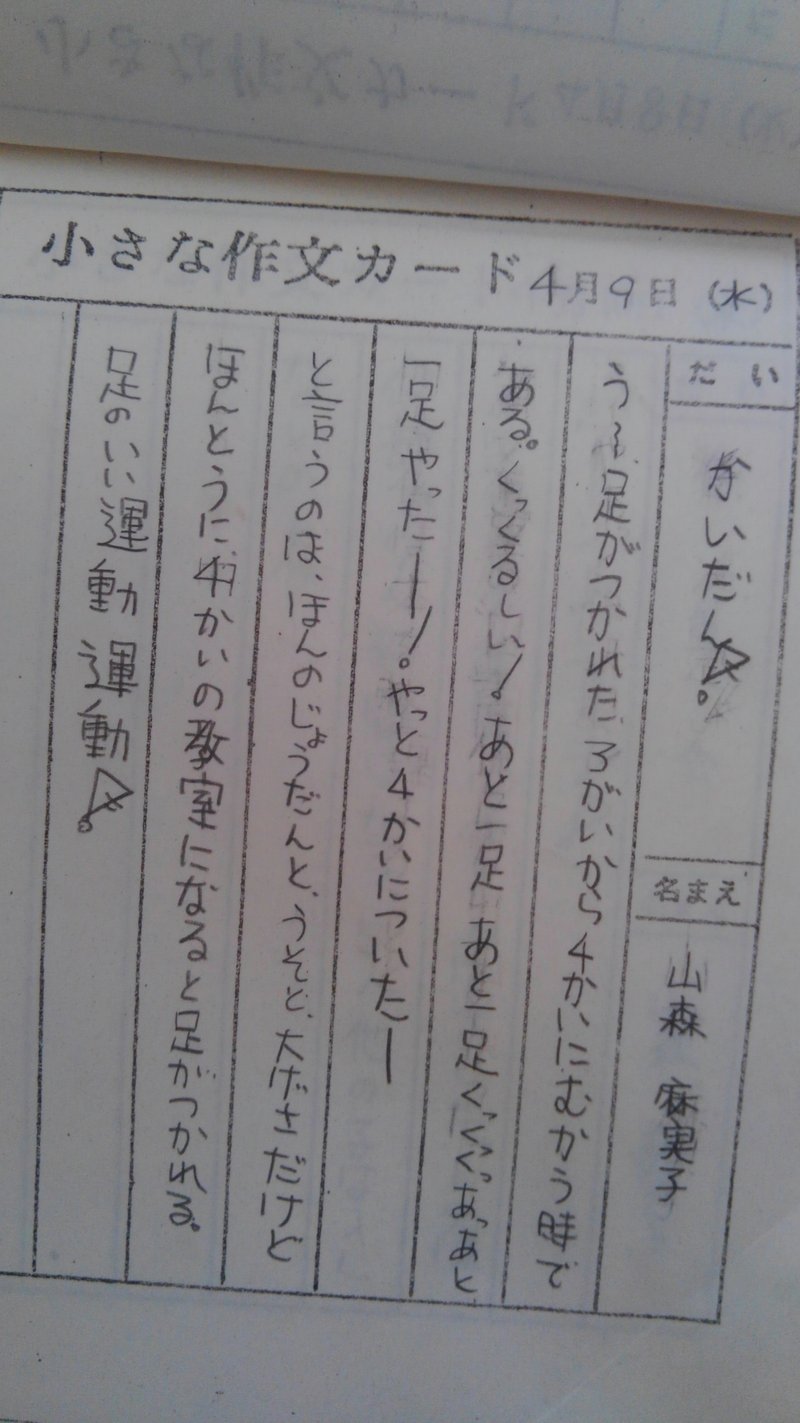 小さな作文カード 4月9日（水）
だい
かいだん☆。
名まえ
山森 麻実子
う〜足がつかれた。3がいから4かいにむかう時で
ある。くっくるしい！あと一足あと一足くっくっくっ。あっあと
一足やったー！。やっと4かいについたー
と言うのは、ほんのじょうだんと、うそと、大げさだけど
ほんとうに4かいの教室になると足がつかれる。
足のいい運動運動☆。